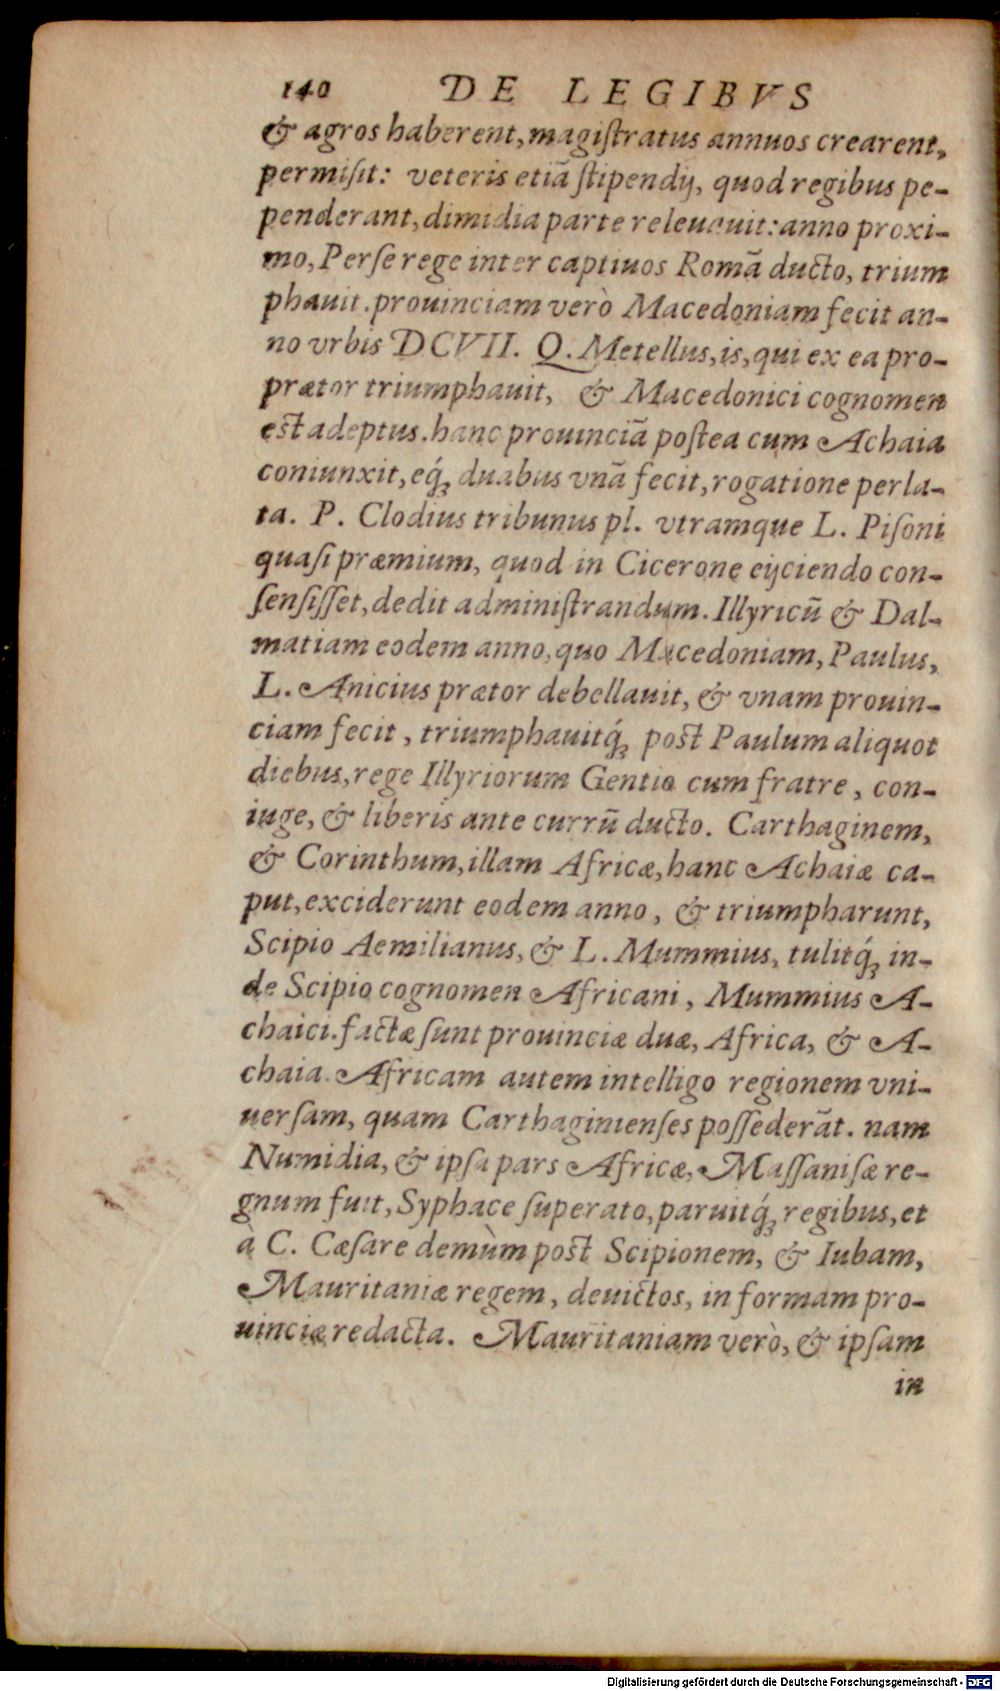 140 DE LEGIBVS
& agros haberent, magistratus annuos crearent,
permisit: veteris etiã stipendij, quod regibus pe-
penderant, dimidia parte releuauit: anno proxi-
mo, Perse rege inter captiuos Romã ducto, trium
phauit. prouinciam verò Macedoniam fecit an-
no vrbis DCVII. Q. Metellus, is, qui ex ea pro-
prætor triumphauit, & Macedonici cognomen
est adeptus. hanc prouinciã postea cum Achaia
coniunxit, eq́ꝫ duabus vnã fecit, rogatione perla-
ta. P. Clodius tribunus pl. vtramque L. Pisoni
quasi præmium, quod in Cicerone eijciendo con-
sensisset, dedit administrandum. Illyricũ & Dal-
matiam eodem anno, quo Macedoniam, Paulus,
L. Anicius prætor debellauit, & vnam prouin-
ciam fecit, triumphauitq́ꝫ post Paulum aliquot
diebus, rege Illyriorum Gentio cum fratre, con-
iuge, & liberis ante currũ ducto. Carthaginem,
& Corinthum, illam Africæ, hanc Achaiæ ca-
put, exciderunt eodem anno, & triumpharunt,
Scipio Aemilianus, & L. Mummius, tulitq́ꝫ in-
de Scipio cognomen Africani, Mummius A-
chaici. factæ sunt prouinciæ duæ, Africa, & A-
chaia. Africam autem intelligo regionem vni-
uersam, quam Carthaginienses possederãt. nam
Numidia, & ipsa pars Africæ, Massanisæ re-
gnum fuit, Syphace superato, paruitq́ꝫ regibus, et
à C. Cæsare demùm post Scipionem, & Iubam,
Mauritaniæ regem, deuictos, in formam pro-
uinciæ redacta. Mauritaniam verò, & ipsam
in
Digitalisierung gefördert durch die Deutsche Forschungsgemeinschaft - DFG